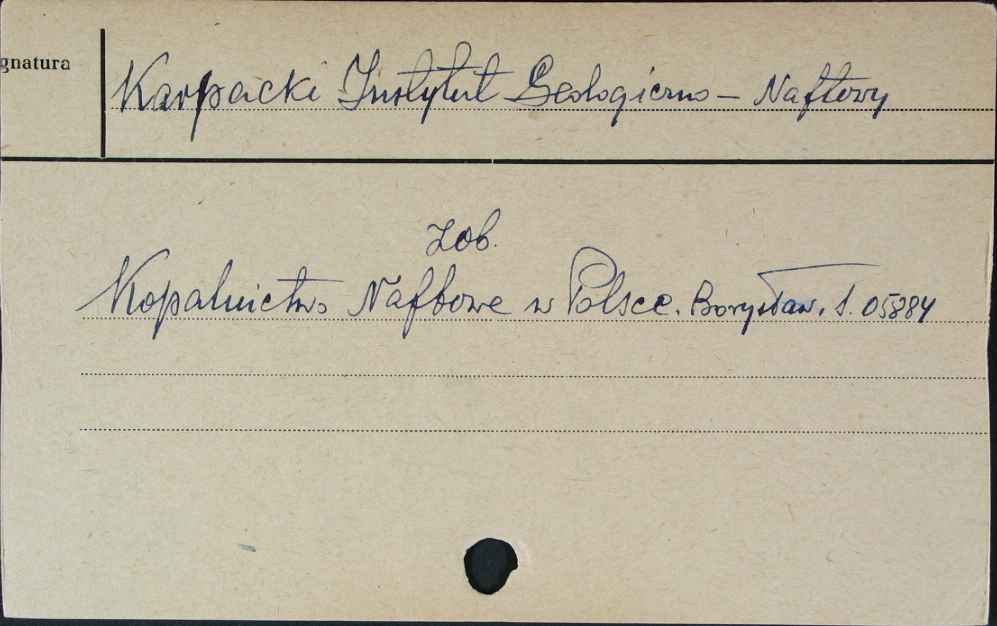 gnatura
Karpacki Instytut Geologiczno - Naftowy
Zob.
Kopalnictwo Naftowe w Polsce. Borysław. S. 05884